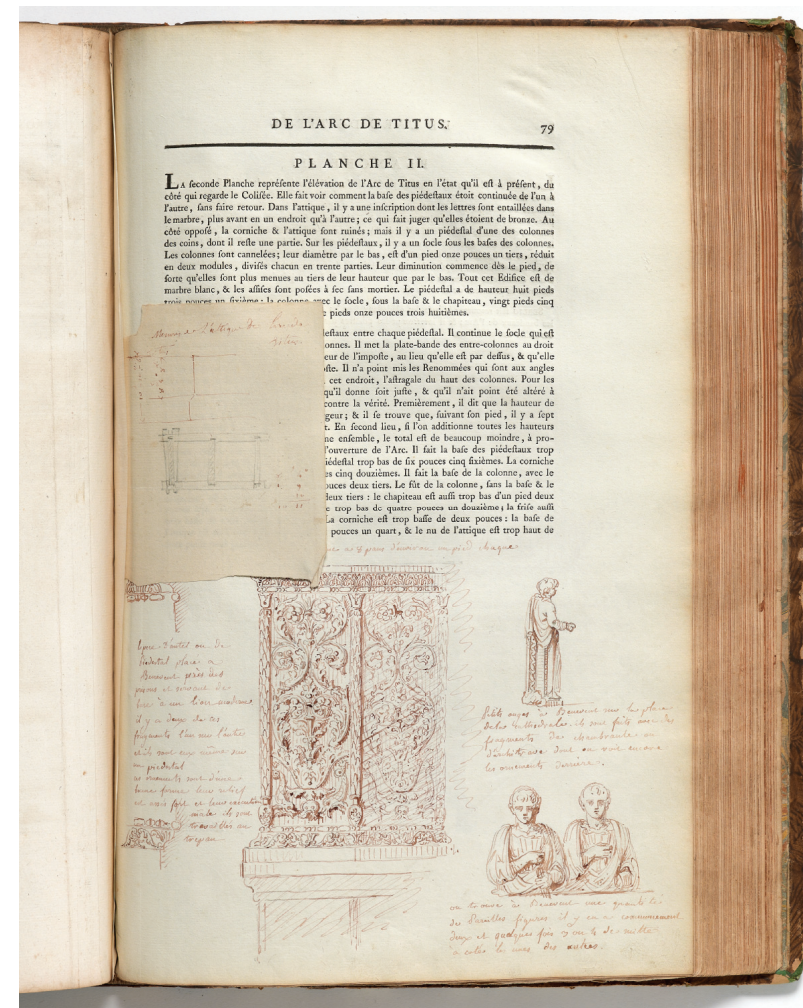 DE L'ARC DE TITUS.
79
PLANCHE II.
LA ſeconde Planche repréſente l'élévation de l'Arc de Titus en l'état qu'il eſt à préſent, du
côté qui regarde le Coliſée. Elle fait voir comment la baſe des piédeſtaux étoit continuée de l'un à
l'autre, ſans faire retour. Dans l'attique, il y a une inſcription dont les lettres ſont entaillées dans
le marbre, plus avant en un endroit qu'à l'autre; ce qui fait juger qu'elles étoient de bronze. Au
côté oppoſé, la corniche & l'attique ſont ruinés; mais il y a un piédeſtal d'une des colonnes
des coins, dont il reſte une partie. Sur les piédeſtaux, il y a un ſocle ſous les baſes des colonnes.
Les colonnes ſont cannelées; leur diamètre par le bas, eſt d'un pied onze pouces un tiers, réduit
en deux modules, diviſés chacun en trente parties. Leur diminution commence dès le pied, de
ſorte qu'elles ſont plus menues au tiers de leur hauteur que par le bas. Tout cet Edifice eſt de
marbre blanc, & les aſſiſes ſont poſées à ſec ſans mortier. Le piédeſtal a de hauteur huit pieds
trois pouces un ſixième: la colonne avec le ſocle, ſous la baſe & le chapiteau, vingt pieds cinq
pieds onze pouces trois huitièmes.
deſtaux entre chaque piédeſtal. Il continue le ſocle qui eſt
onnes. Il met la plate-bande des entre-colonnes au droit
eur de l'impoſte, au lieu qu'elle eſt par deſſus, & qu'elle
oſte. Il n'a point mis les Renommées qui ſont aux angles
cet endroit, l'aſtragale du haut des colonnes. Pour les
qu'il donne ſoit juſte, & qu'il n'ait point été altéré à
contre la vérité. Premièrement, il dit que la hauteur de
geur; & il ſe trouve que, ſuivant ſon pied, il y a ſept
t. En ſecond lieu, ſi l'on additionne toutes les hauteurs
ne enſemble, le total eſt de beaucoup moindre, à pro-
l'ouverture de l'Arc. Il fait la baſe des piédeſtaux trop
iédeſtal trop bas de ſix pouces cinq ſixièmes. La corniche
es cinq douzièmes. Il fait la baſe de la colonne, avec le
ouces deux tiers. Le fût de la colonne, ſans la baſe & le
deux tiers: le chapiteau eſt auſſi trop bas d'un pied deux
e trop bas de quatre pouces un douzième; la friſe auſſi
La corniche eſt trop baſſe de deux pouces: la baſe de
pouces un quart, & le nu de l'attique eſt trop haut de
pied chaque
d'autel ou de
piedestal place a
Benevent près des
il y a deux de ces
fragments l'un sur l'autre
un piedestal
ces ornements sont d'une
bonne forme leur relief
est assez fort et leur execution
male ils sont
travaillés au
trepan
Petits anges à Benevent sur la place
de la cathedrale. ils sont faits avec des
fragments de chambranle ou
d'architrave dont on voit encore
les ornements derriere.
on trouve à Benevent une quantité
de Pareilles figures il y en a communement
deux et quelques fois 3 ou 4 de suitte
a coté les unes des autres.